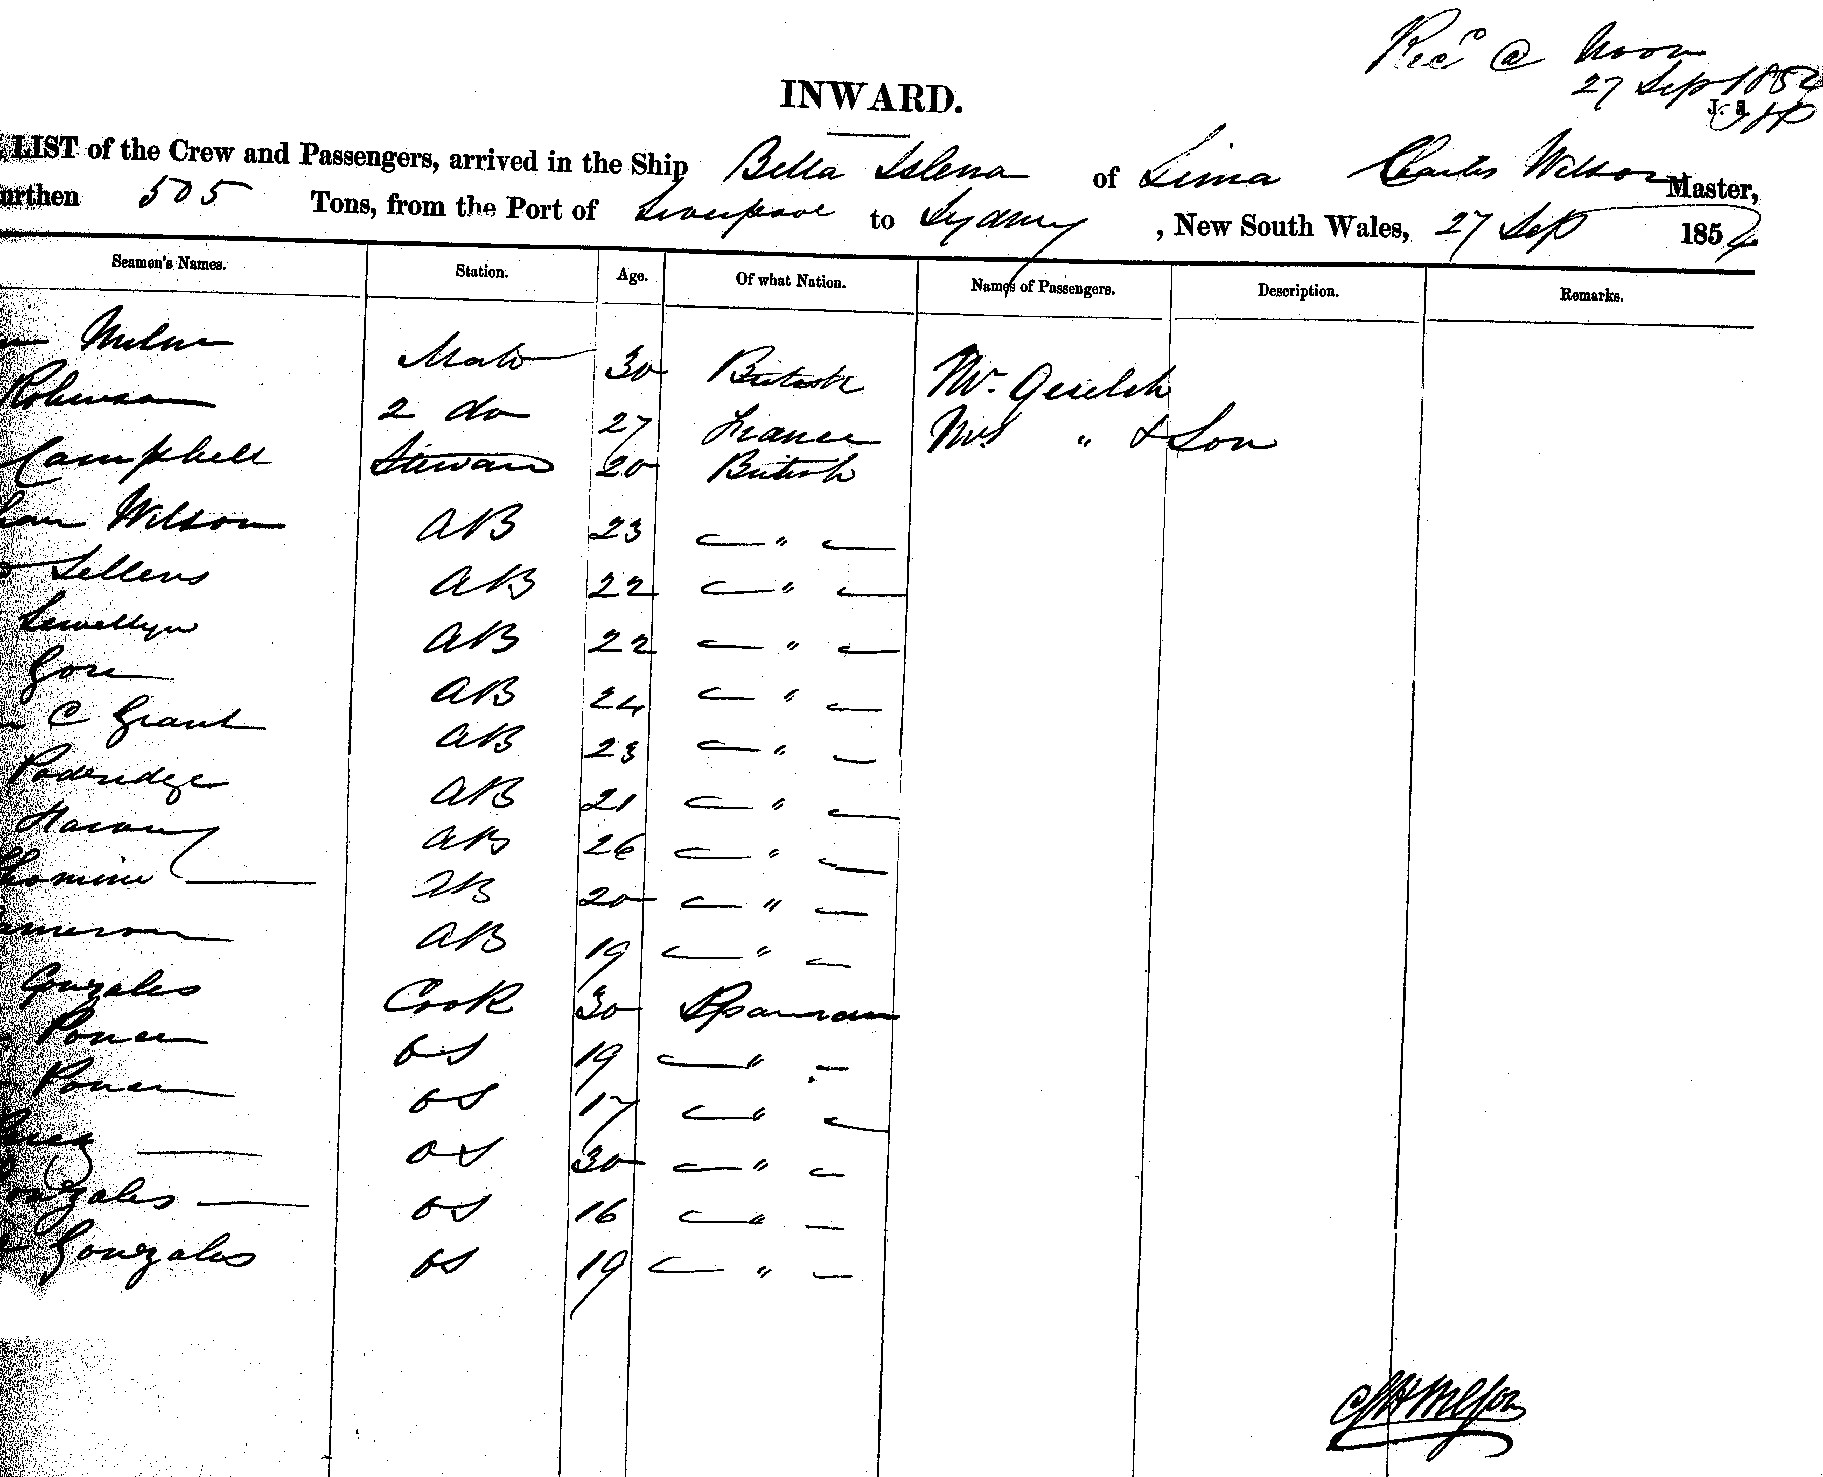 Recd @ Noon
27 Sep 1854
INWARD.
LIST of the Crew and Passengers, arrived in the Ship Bella Islena of Lima Charles Wilson Master,
urthen 505 Tons, from the Port of Liverpool to Sydney , New South Wales, 27 Sep 1854
Seamen's Names. Station. Age. Of what Nation. Names of Passengers. Description. Remarks.
Milne Mate 30 British Mr.
Robinson 2 do 27 France Mrs " & Son
Campbell Steward 20 British
Wilson AB 23 — " —
Sellens AB 22 — " —
Lewellyn AB 22 — " —
Gore AB 24 — " —
C Grant AB 23 — " —
AB 21 — " —
AB 26 — " —
AB 20 — " —
ameron AB 19 — " —
Gonzales Cook 30 Spaniard
Ponce OS 19 — " —
Ponce OS 17 — " —
OS 30 — " —
onzales OS 16 — " —
Gonzales OS 19 — " —
Wilson